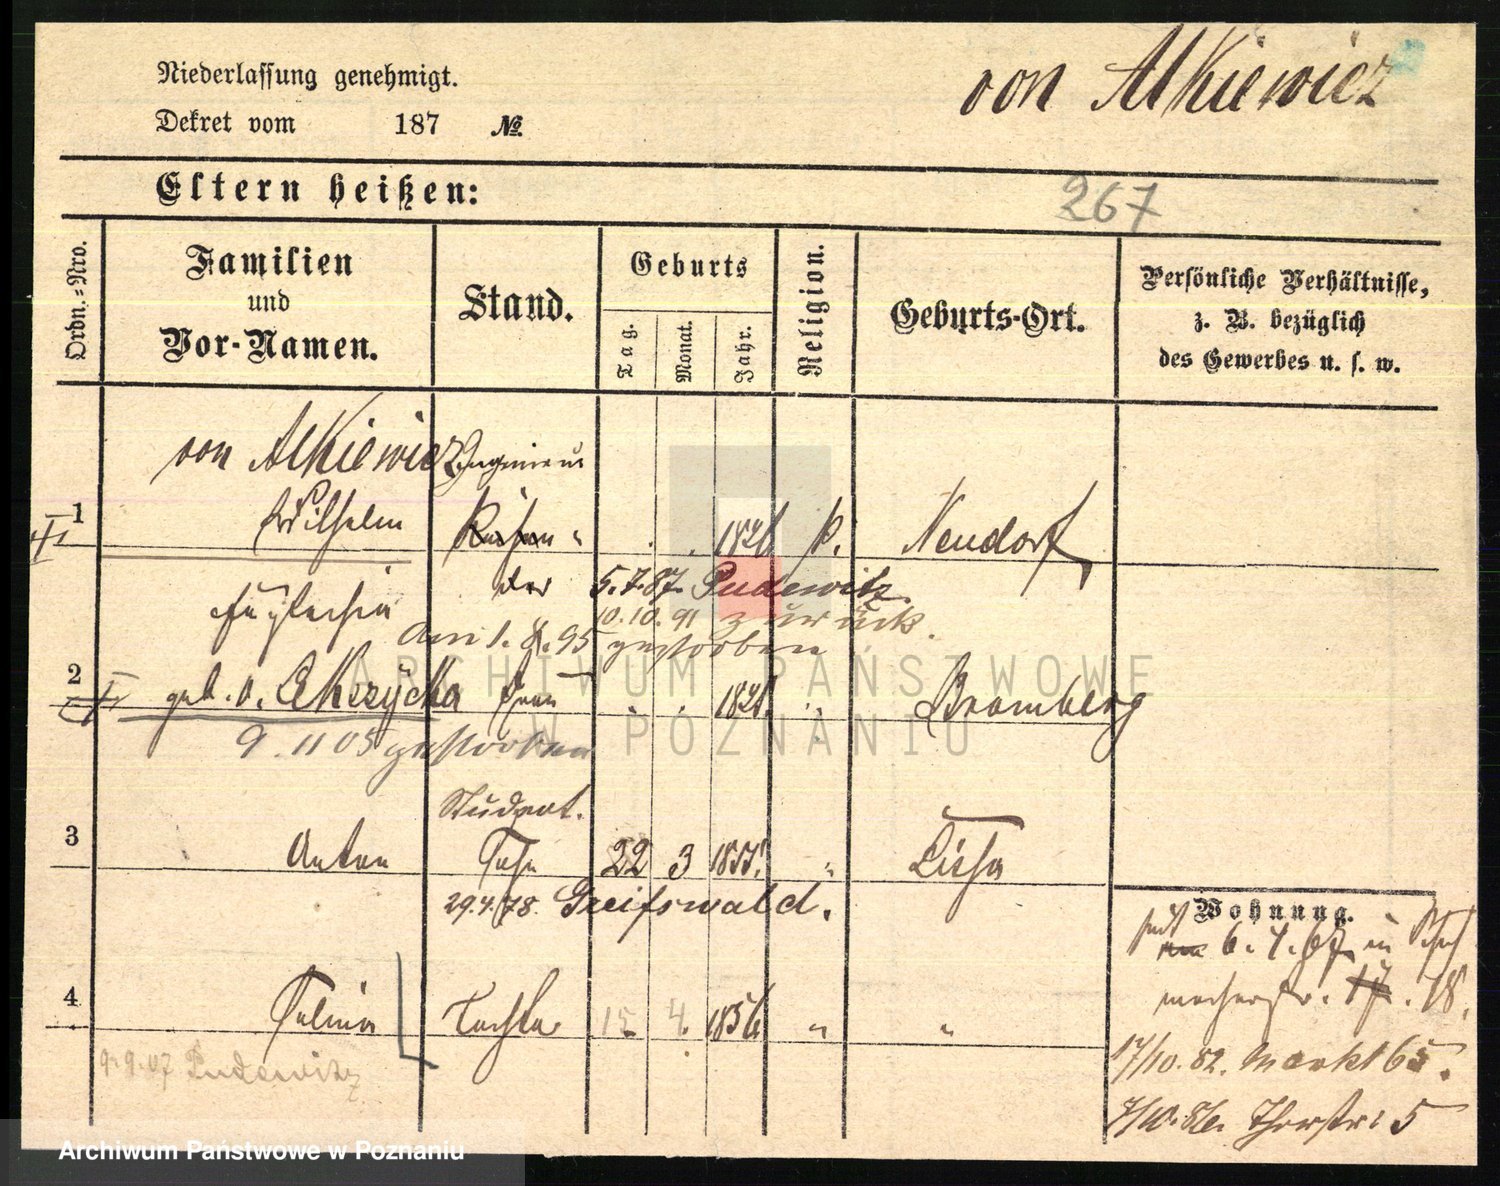 Niederlassung genehmigt.
von Alkiewicz
Dekret vom 187 No.
Eltern heißen:
267
Ordn.=Nro.
Familien
und
Vor-Namen.
Stand.
Geburts
Tag.
Monat.
Jahr.
Religion.
Geburts-Ort.
Persönliche Verhältnisse,
z. B. bezüglich
des Gewerbes u. s. w.
von Alkiewicz Ingenieur
1 Wilhelm 1826 k. Neudorf
der 5.7.87. Pudewitz.
10.10.91 zurück.
am 1. 8. 95 gestorben
2 geb. v. Frau 182 " Bromberg
9. 11 05 gestorben
Student.
3 Anton Sohn 22 3 1855. " Lissa
29.4.78. Greifswald.
Wohnung.
seit 6. 4. 67 in Schuh
macherstr. 17. 18.
4 Tochter 15 4. 1856 " "
9.9.07 Pudewitz
17/10. 82. Markt 65.
7/10. 86. Thorstr. 5
ARCHIWUM PAŃSTWOWE
W POZNANIU
Archiwum Państwowe w Poznaniu